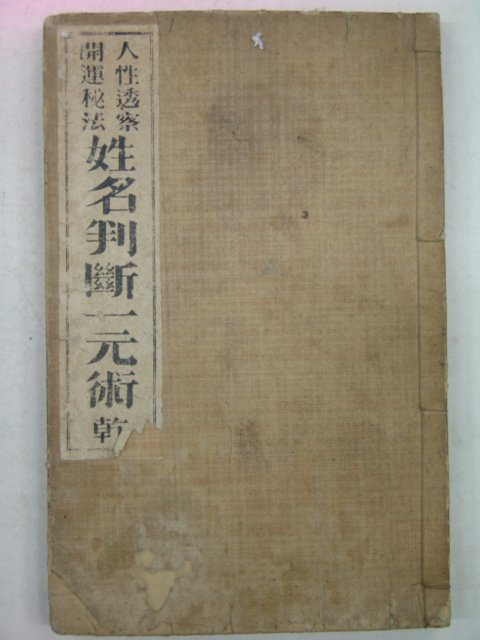 人性透察
開運秘法
姓名判斷一元術 乾